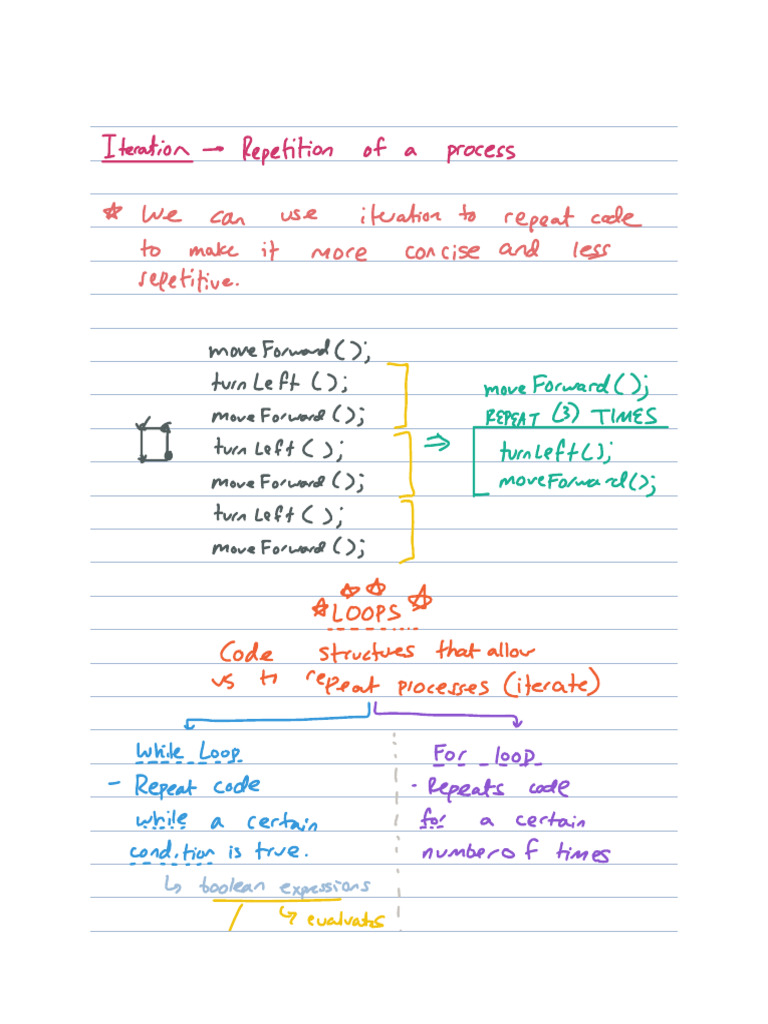 Iteration → Repetition of a process
☆ We can use iteration to repeat code
to make it more concise and less
repetitive.
moveForward();
turnLeft();
moveForward();
turnLeft();
moveForward();
turnLeft();
moveForward();
⇒
moveForward();
REPEAT (3) TIMES
turnLeft();
moveForward();
☆ ☆ ☆ LOOPS ☆
Code structures that allow
us to repeat processes (iterate)
While Loop
- Repeat code
while a certain
condition is true.
↳ boolean expressions
↳ evaluates
For loop
- Repeats code
for a certain
number of times